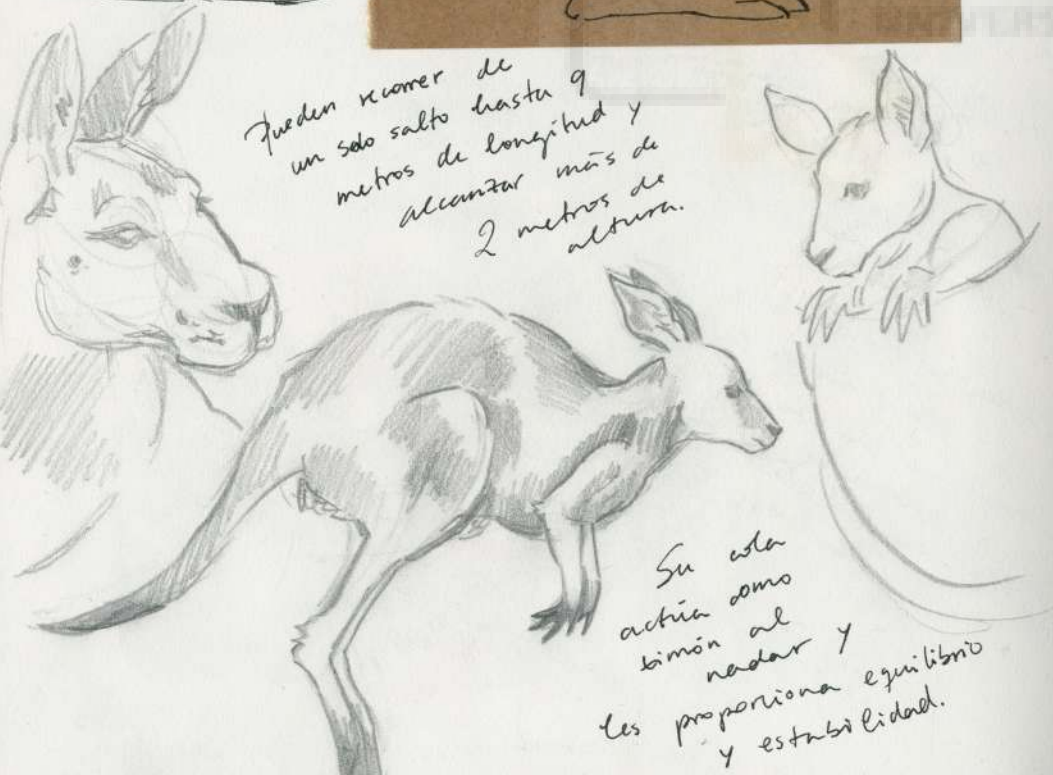 Pueden recorrer de
un solo salto hasta 9
metros de longitud y
alcanzar más de
2 metros de
altura.
Su cola
actúa como
timón al
nadar y
les proporciona equilibrio
y estabilidad.